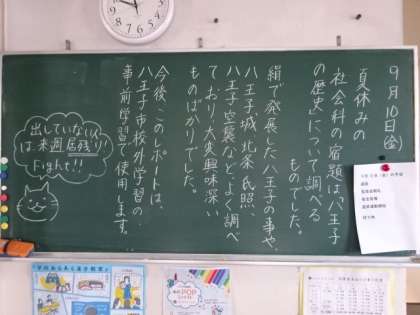 9月10日(金)
夏休みの
社会科の宿題は、「八王子
の歴史」について調べる
ものでした。
絹で発展した八王子の事や、
八王子城、北条氏照、
八王子空襲など、よく調べ
ており、大変興味深い
ものばかりでした。
今後、このレポートは、
八王子市校外学習の
事前学習で使用します。
出していない人
は来週居残り!
Fight!!